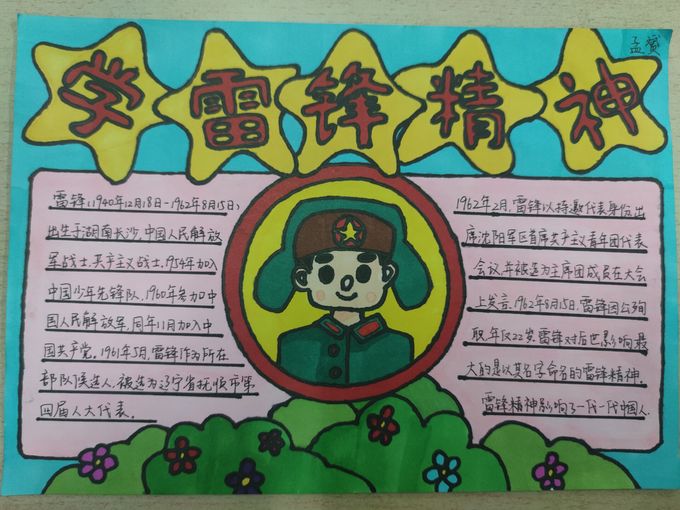 孟赟
学雷锋精神
雷锋(1940年12月18日-1962年8月15日)
出生于湖南长沙,中国人民解放
军战士,共产主义战士,1954年加入
中国少年先锋队,1960年参加中
国人民解放军,同年11月加入中
国共产党。1961年5月,雷锋作为所在
部队候选人,被选为辽宁省抚顺市第
四届人大代表。
1962年2月,雷锋以特邀代表身份出
席沈阳军区首席共产主义青年团代表
会议,并被选为主席团成员在大会
上发言,1962年8月15日,雷锋因公殉
职,年仅22岁,雷锋对后世影响最
大的是以其名字命名的雷锋精神.
雷锋精神影响了一代一代中国人.